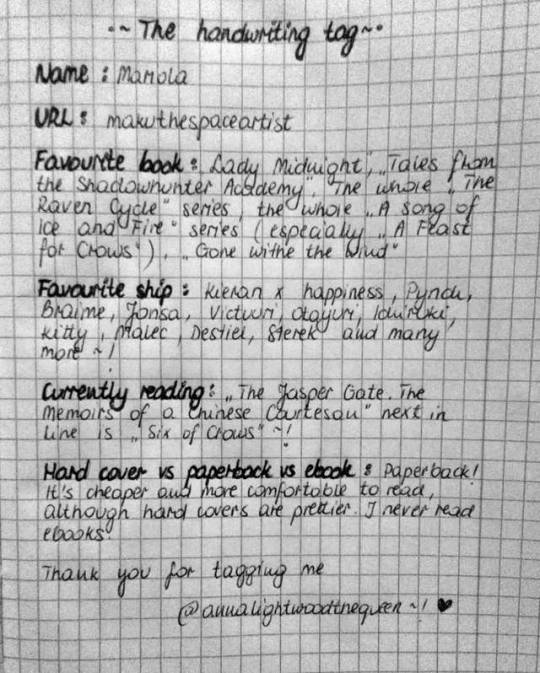 ~ The handwriting tag ~
Name : Mariola
URL : makuthespaceartist
Favourite book : Lady Midnight", „Tales from
the Shadowhunter Academy" The whole „The
Raven Cycle" series, the whole „A song of
Ice and Fire" series (especially „A Feast
for Crows"), „Gone withe the Wind"
Favourite ship : Kieran x happiness, Pynch,
Braime, Jonsa, Victuuri, Otayuri, Ichiruki,
Kitty, Malec, Destiel, Sterek and many
more ~!
Currently reading : „The Jasper Gate. The
Memoirs of a Chinese Courtesan" next in
line is „Six of Crows" ~!
Hard cover vs paperback vs ebook : Paperback!
It's cheaper and more comfortable to read,
although hard covers are prettier. I never read
ebooks.
Thank you for tagging me
@annalightwoodthequeen ~! ♥